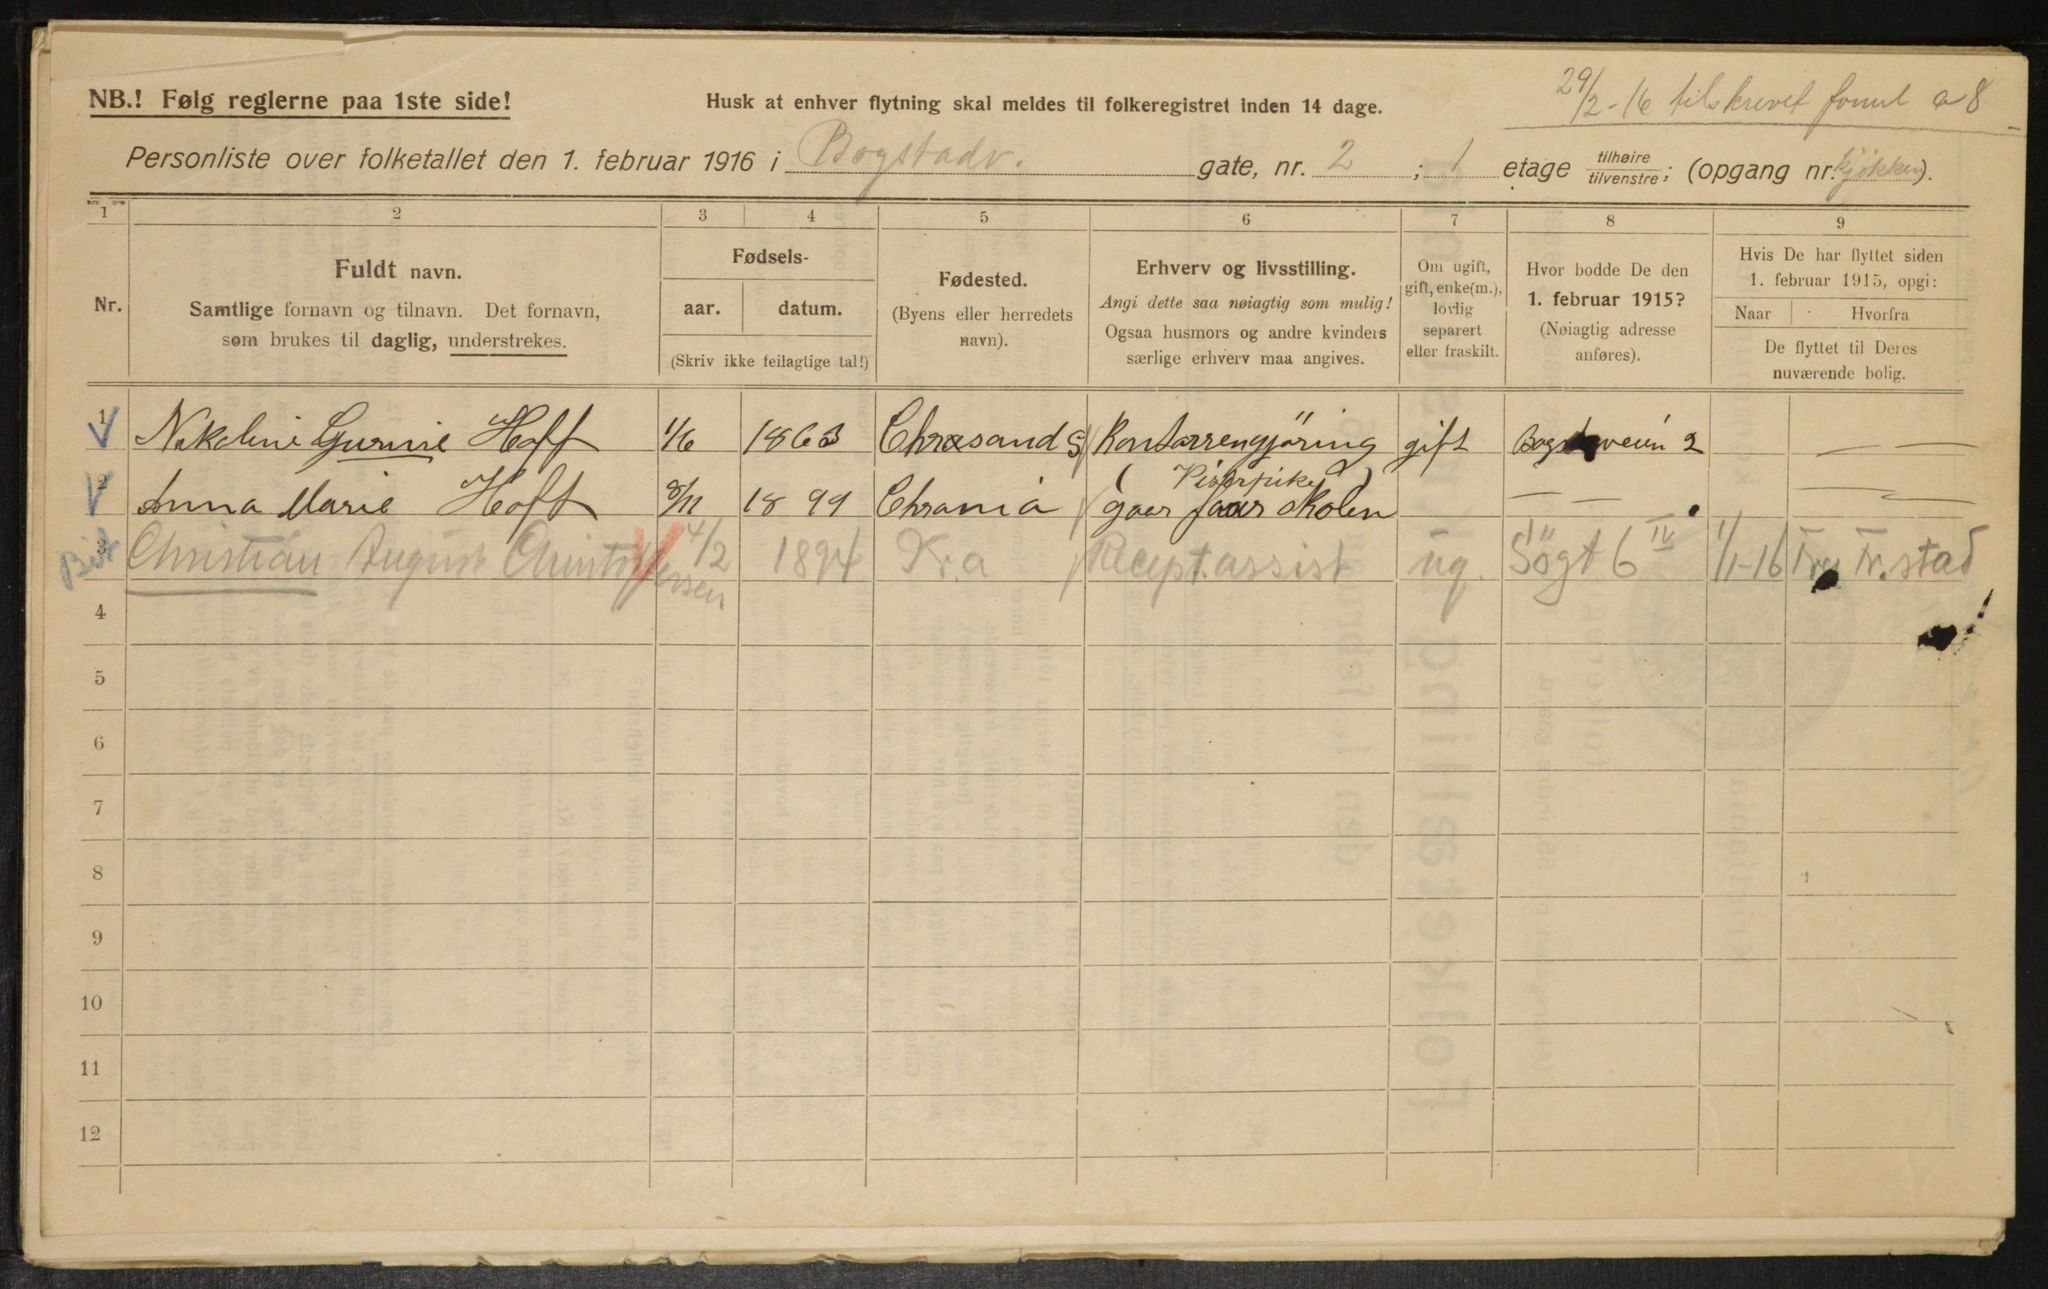 29/2-16 tilskrevet
NB.! Følg reglerne paa 1ste side! Husk at enhver flytning skal meldes til folkeregistret inden 14 dage.
Personliste over folketallet den 1. februar 1916 i Bogstadv. gate, nr. 2 ; 1 etage tilhøire/tilvenstre; (opgang nr. kjøkken).
1 2 3 4 5 6 7 8 9
Nr.
Fuldt navn.
Samtlige fornavn og tilnavn. Det fornavn,
som brukes til daglig, understrekes.
Fødsels-
aar. datum.
(Skriv ikke feilagtige tal!)
Fødested.
(Byens eller herredets
navn).
Erhverv og livsstilling.
Angi dette saa nøiagtig som mulig!
Ogsaa husmors og andre kvinders
særlige erhverv maa angives.
Om ugift,
gift, enke(m.),
lovlig
separert
eller fraskilt.
Hvor bodde De den
1. februar 1915?
(Nøiagtig adresse
anføres).
Hvis De har flyttet siden
1. februar 1915, opgi:
Naar Hvorfra
De flyttet til Deres
nuværende bolig.
1 Hoff 1/6 1863 Chrsand S Kontorrengjöring gift 2 — —
2 Anna Marie Hoff 8/11 1899 Chrania gaar paa skolen — — — —
3 Christian August Christoffersen 4/2 1894 Kra assist ug. Sogt 6 IV 1/1-16 Fr. stad
4
5
6
7
8
9
10
11
12